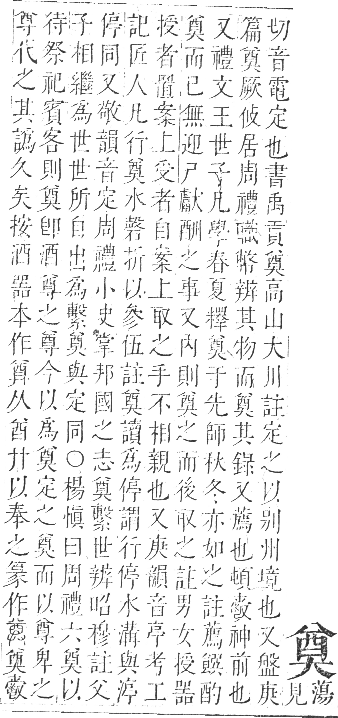 奠蕩見
切音電定也書禹貢奠高山大川註定之以别州境也又盤庚
篇奠厥攸居周禮職幣辨其物而奠其錄又薦也頓爵神前也
又禮文王世子凡學春夏釋奠于先師秋冬亦如之註薦饌酌
奠而已無迎尸獻酬之事又内則奠之而後取之註男女授器
授者置案上受者自案上取之手不相親也又庚韻音亭考工
記匠人凡行奠水磬折以參伍註奠讀爲停謂行停水溝與渟
停同又敬韻音定周禮小史掌邦國之志奠繫世辨昭穆註父
子相繼爲世世所自出爲繫奠與定同○楊愼曰周禮六奠以
待祭祀賓客則奠卽酒尊之尊今以爲奠定之奠而以尊卑之
尊代之其譌久矣按酒器本作从酋廾以奉之篆作奠爵